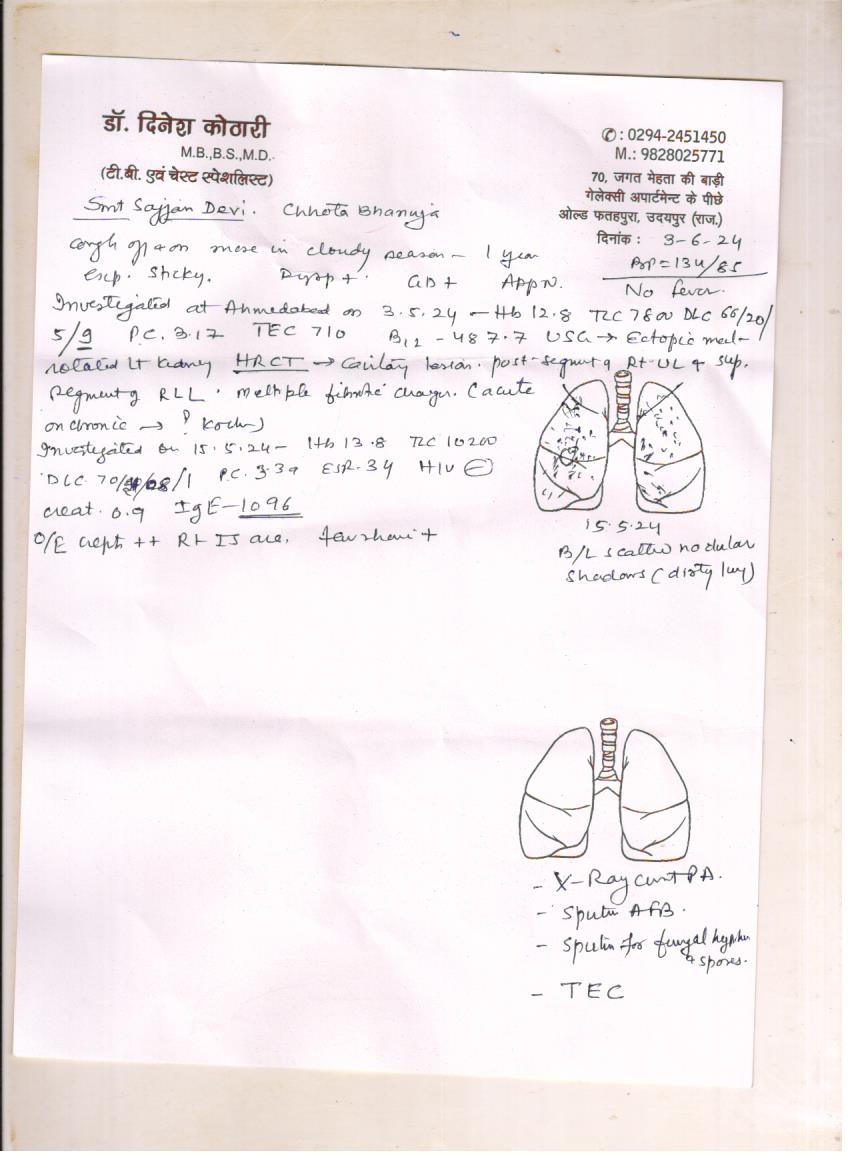 डॉ. दिनेश कोठारी
M.B.,B.S.,M.D.
(टी.बी. एवं चेस्ट स्पेशलिस्ट)
✆ : 0294-2451450
M.: 9828025771
70, जगत मेहता की बाड़ी
गेलेक्सी अपार्टमेन्ट के पीछे
ओल्ड फतहपुरा, उदयपुर (राज.)
दिनांक : 3-6-24
Smt Sajjan Devi. Chhota Bhanuja
BP = 134/85
No fever.
Cough off + on more in cloudy season - 1 year
exp. Sticky. Dysp +. GB + App N.
Investigated at Ahmedabad on 3.5.24 - Hb 12.8 TLC 7800 DLC 66/20/
5/9 P.C. 3.17 TEC 710 B12 - 487.7 USG → Ectopic mal-
rotated Lt kidney HRCT → Cavitary lesion. post-segment of Rt UL & sup.
segment of RLL. Multiple fibrotic changes. (acute
on chronic → ? Koch)
Investigated on 15.5.24 - Hb 13.8 TLC 10200
DLC 70/ /08/1 P.C. 3.39 ESR. 34 HIV ⊖
creat. 0.9 IgE - 1096
O/E crepts ++ Rt IS area.
15.5.24
B/L scattered nodular
shadows (dirty lung)
- X-Ray Chest PA.
- Sputum AFB.
- Sputum for fungal hyphae
& spores.
- TEC